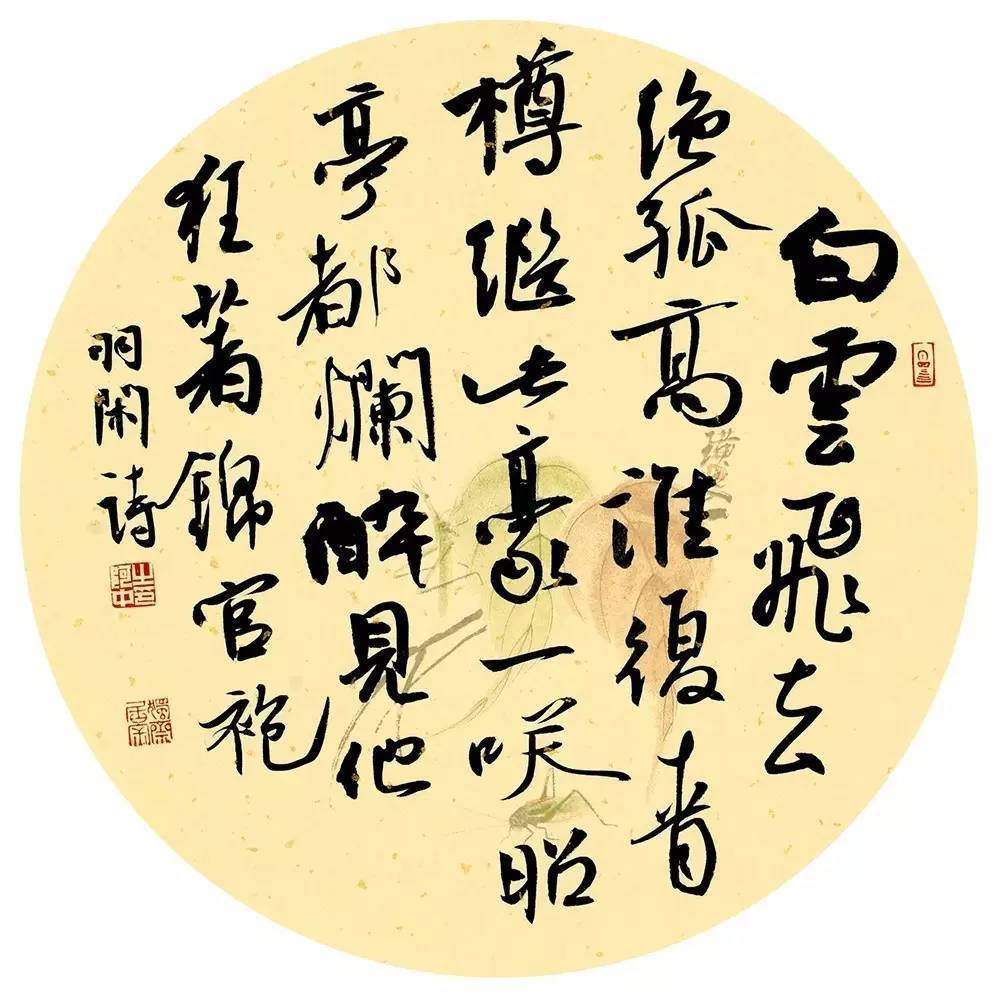 白雲飛去
絶孤高誰復青
樽繼此豪一咲昭
亭都爛醉見他
狂著錦官袍
羽閑詩